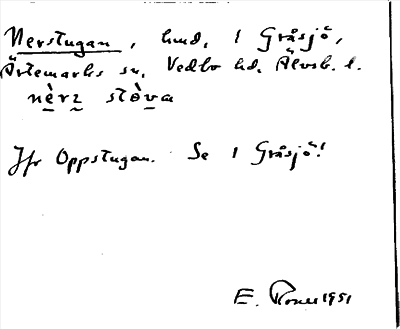 Nerstugan, hmd, 1 Gråsjö,
Ärtemarks sn, Vedbo hd. Älvsb. l.
nèrz stòva
Jfr Oppstugan. Se 1 Gråsjö!
E. 1951